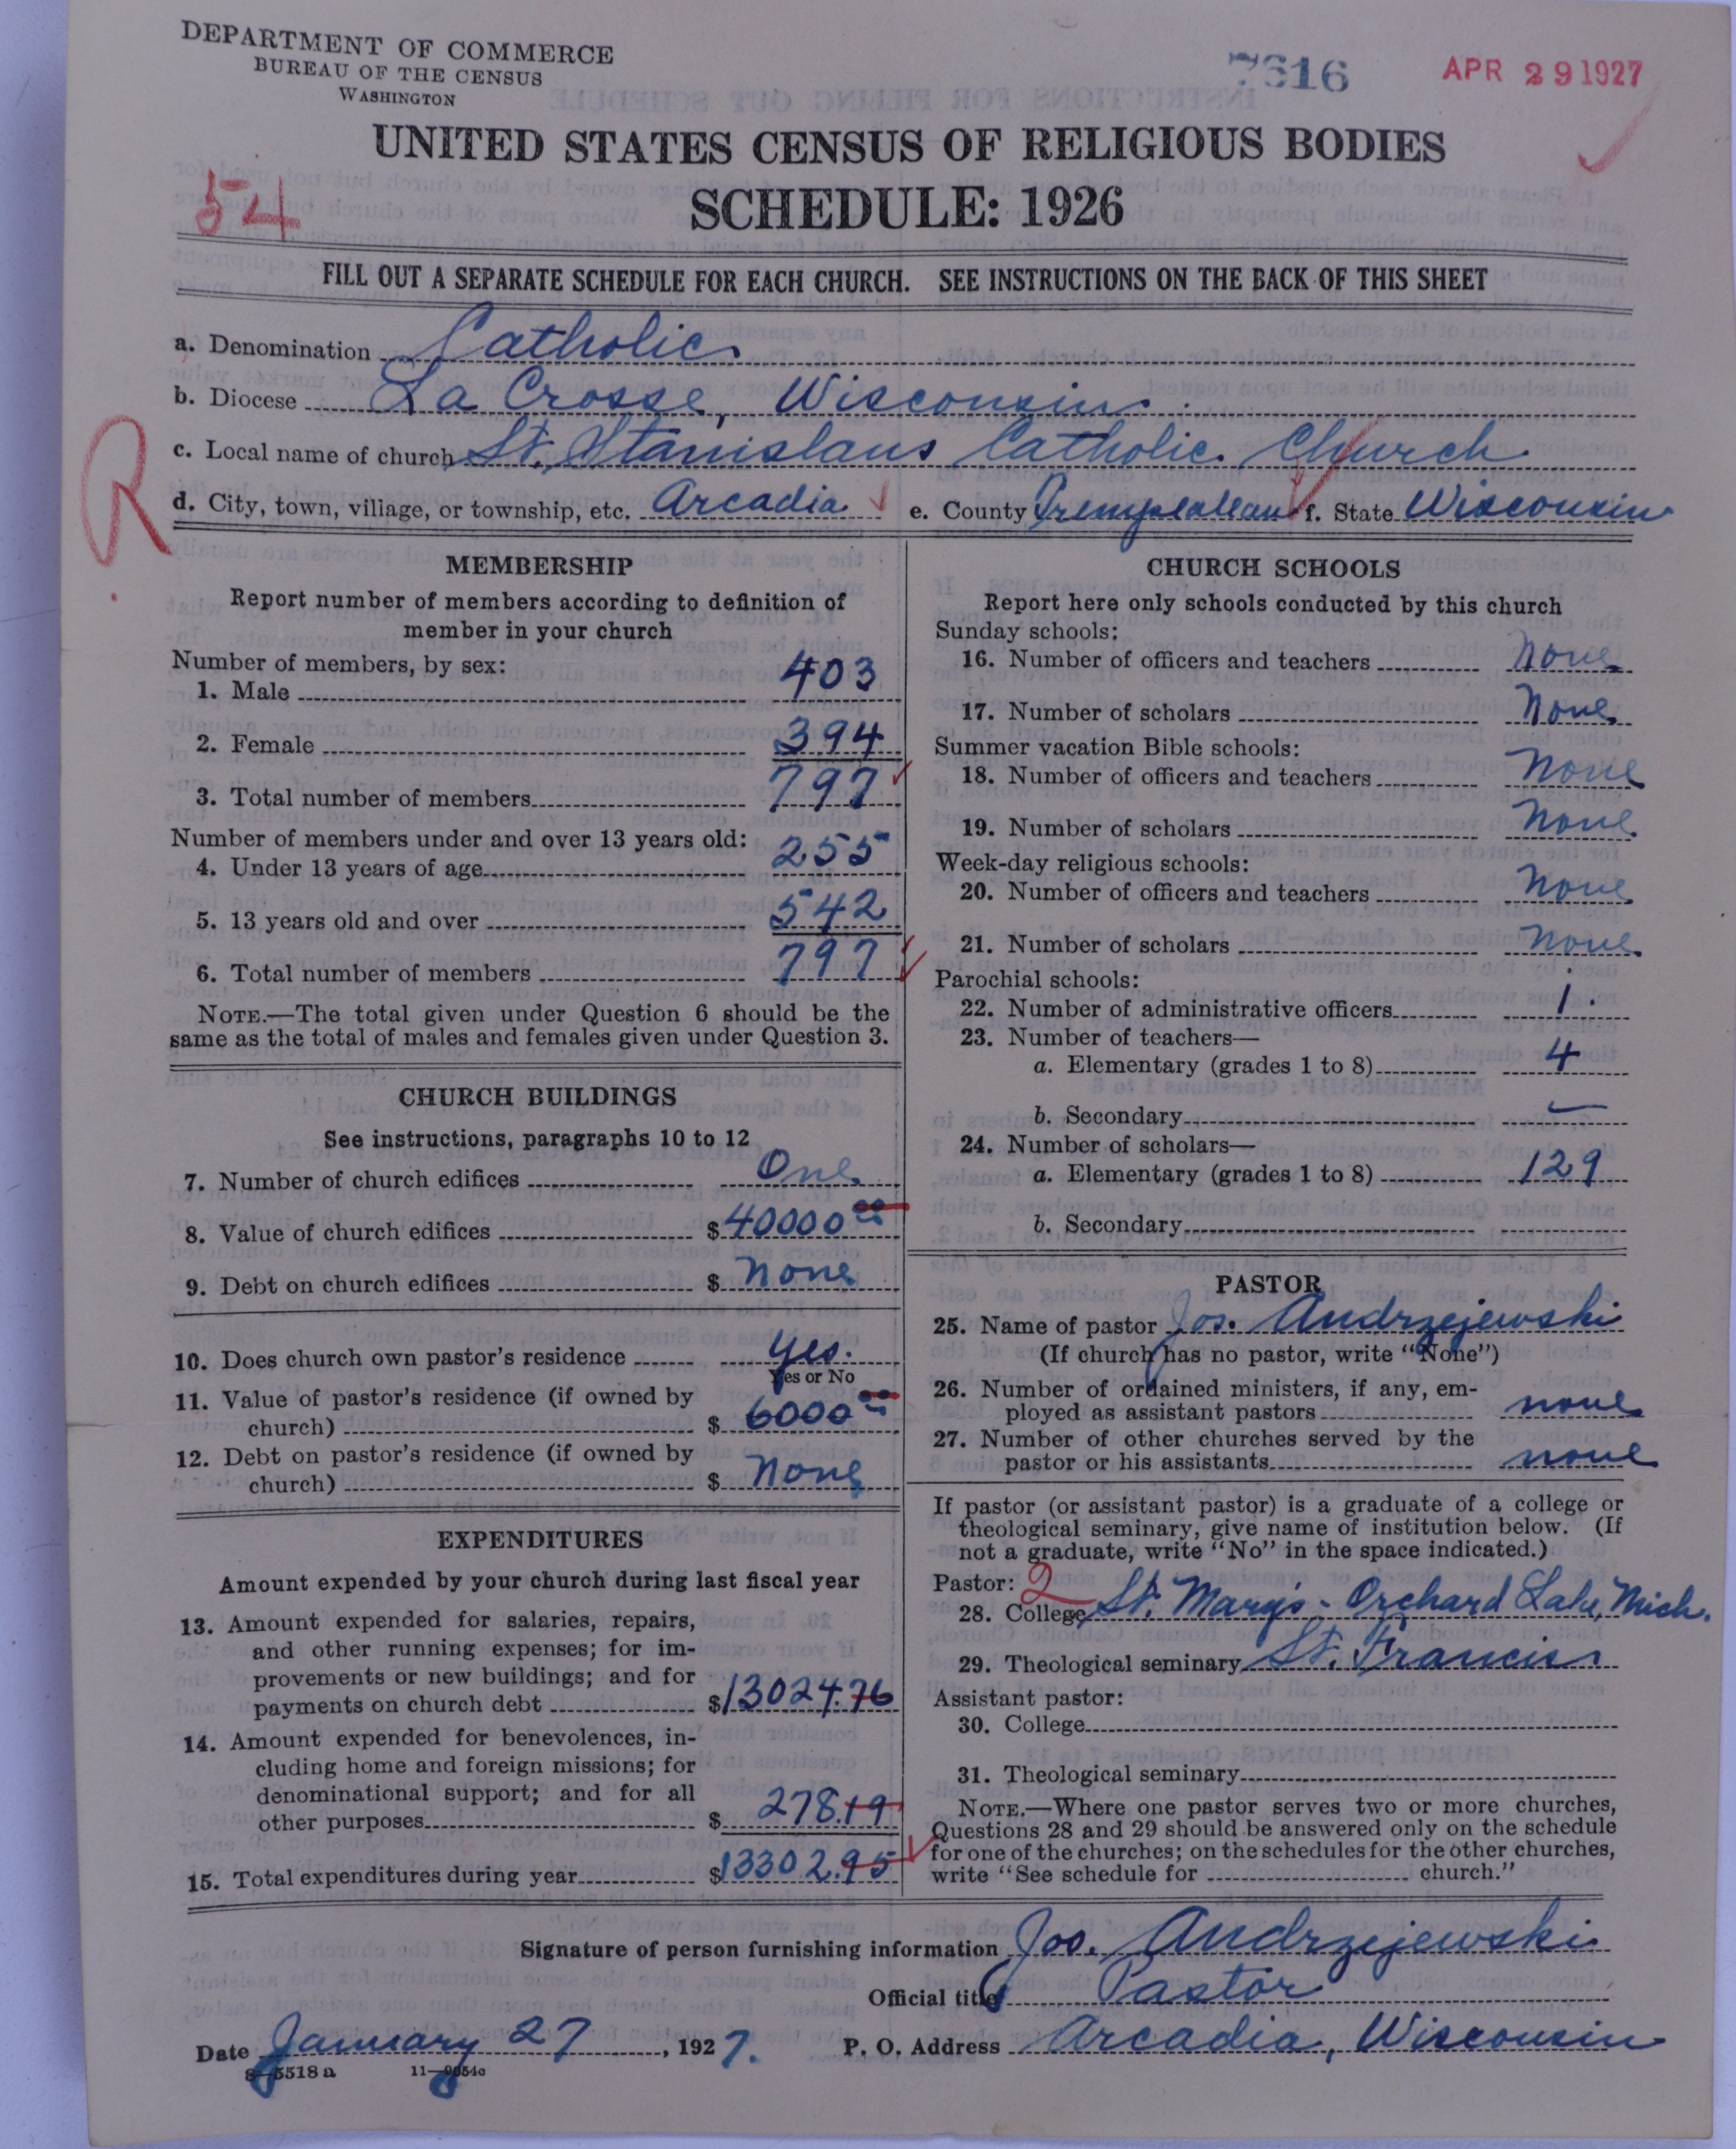 DEPARTMENT OF COMMERCE
BUREAU OF THE CENSUS
WASHINGTON
7616
APR 29 1927
UNITED STATES CENSUS OF RELIGIOUS BODIES
54
SCHEDULE: 1926
FILL OUT A SEPARATE SCHEDULE FOR EACH CHURCH. SEE INSTRUCTIONS ON THE BACK OF THIS SHEET
a. Denomination Catholic
b. Diocese La Crosse, Wisconsin.
R
c. Local name of church St. Stanislaus Catholic Church
d. City, town, village, or township, etc. Arcadia e. County Trempealeau f. State Wisconsin
MEMBERSHIP
Report number of members according to definition of
member in your church
Number of members, by sex:
1. Male 403
2. Female 394
3. Total number of members 797
Number of members under and over 13 years old:
4. Under 13 years of age 255
5. 13 years old and over 542
6. Total number of members 797
NOTE.—The total given under Question 6 should be the
same as the total of males and females given under Question 3.
CHURCH BUILDINGS
See instructions, paragraphs 10 to 12
7. Number of church edifices One
8. Value of church edifices $40000 00
9. Debt on church edifices $ None
10. Does church own pastor's residence Yes.
Yes or No
11. Value of pastor's residence (if owned by
church) $ 6000 00
12. Debt on pastor's residence (if owned by
church) $ None
EXPENDITURES
Amount expended by your church during last fiscal year
13. Amount expended for salaries, repairs,
and other running expenses; for im-
provements or new buildings; and for
payments on church debt $13024.76
14. Amount expended for benevolences, in-
cluding home and foreign missions; for
denominational support; and for all
other purposes $ 278.19
15. Total expenditures during year $13302.95
CHURCH SCHOOLS
Report here only schools conducted by this church
Sunday schools:
16. Number of officers and teachers None
17. Number of scholars None
Summer vacation Bible schools:
18. Number of officers and teachers None
19. Number of scholars None.
Week-day religious schools:
20. Number of officers and teachers None
21. Number of scholars None
Parochial schools:
22. Number of administrative officers 1.
23. Number of teachers—
a. Elementary (grades 1 to 8) 4
b. Secondary —
24. Number of scholars—
a. Elementary (grades 1 to 8) 129
b. Secondary
PASTOR
25. Name of pastor Jos. Andrzejewski
(If church has no pastor, write "None")
26. Number of ordained ministers, if any, em-
ployed as assistant pastors none
27. Number of other churches served by the
pastor or his assistants none
If pastor (or assistant pastor) is a graduate of a college or
theological seminary, give name of institution below. (If
not a graduate, write "No" in the space indicated.)
Pastor: 2
28. College St. Mary's - Orchard Lake, Mich.
29. Theological seminary St. Francis
Assistant pastor:
30. College
31. Theological seminary
NOTE.—Where one pastor serves two or more churches,
Questions 28 and 29 should be answered only on the schedule
for one of the churches; on the schedules for the other churches,
write "See schedule for church."
Signature of person furnishing information Jos. Andrzejewski
Official title Pastor
Date January 27, 1927. P. O. Address Arcadia, Wisconsin
8—5518 a 11—9654c